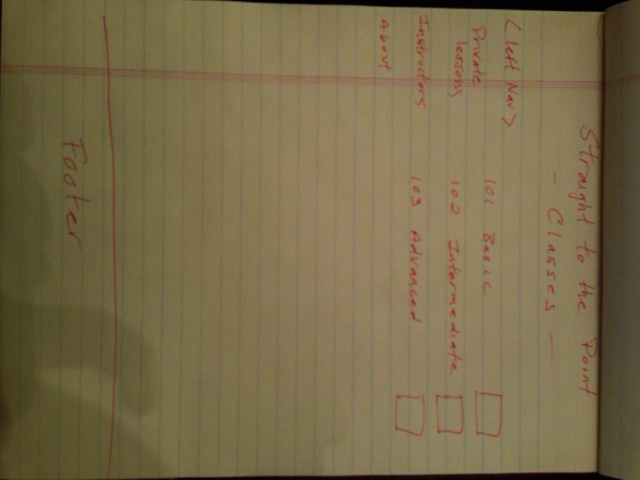 Straight to the Point
- Classes -
<left Nav>
Private
lessons
Instructors
About
101 Basic
102 Intermediate
103 Advanced
Footer